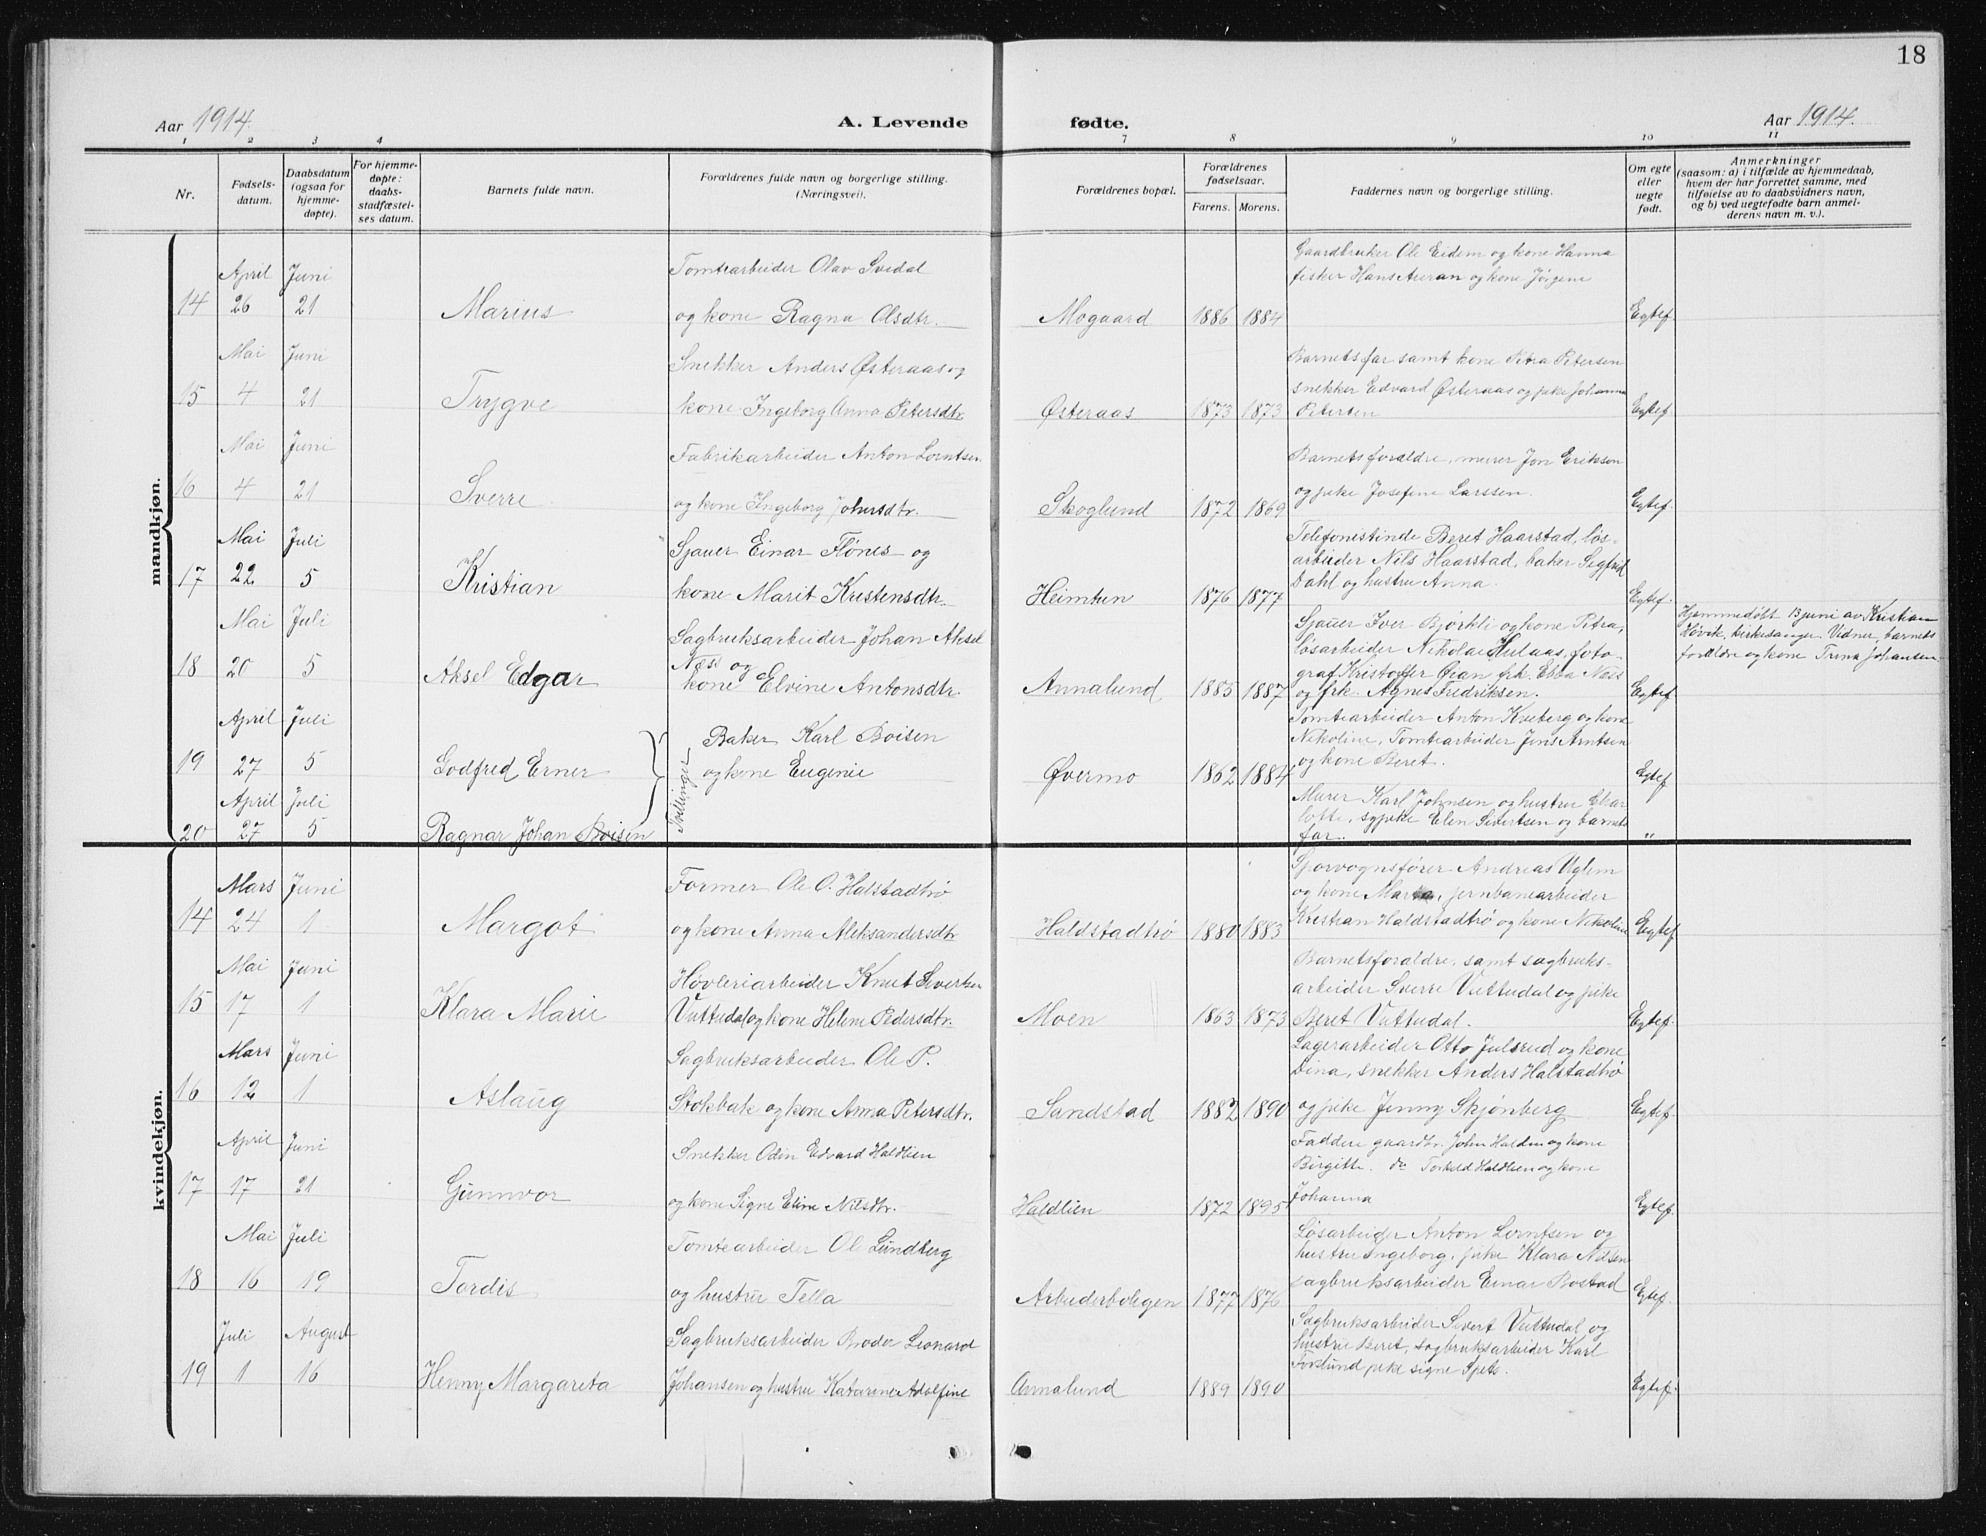 18
Aar 1914. A. Levende fødte. Aar 1914.
1 2 3 4 7 8 9 10 11
Nr.
Fødsels-
datum.
Daabsdatum
(ogsaa for
hjemme-
døpte).
For hjemme-
døpte:
daabs-
stadfæstel-
ses datum.
Barnets fulde navn.
Forældrenes fulde navn og borgerlige stilling.
(Næringsvei).
Forældrenes bopæl.
Forældrenes
fødselsaar.
Farens. Morens.
Faddernes navn og borgerlige stilling.
Om egte
eller
uegte
født.
Anmerkninger
(saasom: a) i tilfælde av hjemmedaab,
hvem der har forrettet samme, med
tilføielse av to daabsvidners navn,
og b) ved uegtefødte barn anmel-
derens navn m. v.).
mandkjøn.
April Juni
14 26 21 Marius
Tomtearbeider Olav Svedal
og kone Ragna Olsdtr.
Mogaard 1886 1884
Gaardbruker Ole Eidem og kone Hanna
fisker Hans Aueran og kone Jørgine
Egtef.
Mai Juni
15 4 21 Trygve
Snekker Anders Østeraas og
kone Ingeborg Anna Petersdtr
Østeraas 1873 1873
Barnets far samt kone Petra Petersen
snekker Edvard Østeraas og pike Johanna
Petersen
Egtef
Mai Juni
16 4 21 Sverre
Fabrikarbeider Anton Lorntsen
og kone Ingeborg Johnsdtr.
Skoglund 1872 1869
Barnets foraldre, murer Jon Erikson
og pike Josefine Larssen.
Egtef.
Mai Juli
17 22 5 Kristian
Sjauer Einar Flönes og
kone Marit Kristensdtr.
Heimtun 1876 1877
Telefonistinde Beret Haarstad, løs-
arbeider Nils Haarstad, baker Segfrid
Dahl og hustru Anna.
Egtef.
Mai Juli
18 20 5 Aksel Edgar
Sagbruksarbeider Johan Aksel
Næss og
kone Elvine Antonsdtr
Annalund 1885 1887
Sjauer Iver Bjørkli og kone Petra,
løsarbeider Nikolai Hulaas, foto-
graf Kristoffer Øian frk. Ebba Næss
og frk. Agnes Fredriksen.
Egtef
Hjemmedøbt 13 juni av Kristian
Høvik, kirkesanger. Vidner, barnets
forældre og kone Trina Johansen
April Juli
19 27 5 Godfred Erner
Tvillinger
Baker Karl Boisen
og kone Eugenie
Øvermo 1862 1884
Tomtearbeider Anton Kveberg og kone
Nikoline, Tomtearbeider Jens Arntsen
og kone Beret.
Egtef
April Juli
20 27 5 Ragnar Johan Boisen
Murer Karl Johnsen og hustru Char
lotte, sypike Elen Sivertsen og barnets
far.
"
kvindekjøn.
Mars Juni
14 24 1 Margot
Former Ole O. Halstadtrö
og kone Anna Aleksandersdtr
Haldstadtrö 1880 1883
Sporvognsfører Andreas Uglem
og kone Marta, jernbanearbeider
Kristian Haldstadtrö og kone Nikoline
Egtef
Mai Juni
15 17 1 Klara Marie
Høvleriarbeider Knut Sivertsen
Vuttudal og kone Helene Pedersdtr.
Moen 1863 1873
Barnets foraldre, samt sagbruks-
arbeider Sverre Vuttudal og pike
Beret Vuttudal.
Egtef.
Mars Juni
16 12 1 Aslaug
Sagbruksarbeider Ole P.
Stokbak og kone Anna Petersdtr.
Sandstad 1882 1890
Lagerarbeider Otto Julsrud og kone
Dina, snekker Anders Halstadtrö
og pike Jenny Skjønberg
Egtef
April Juni
17 17 21 Gunnvor
Snekker Odin Edvard Haldlien
og kone Signe Eline Nilsdtr.
Haldlien 1872 1895
Faddere gaardbr. John Haldin og kone
Birgitte. do Torkeld Haldlien og kone
Johanna
Egtef.
Mai Juli
18 16 19 Tordis
Tomtearbeider Ole Lundberg
og hustru Tella
Arbeiderboligen 1877 1876
Løsarbeider Anton Lorntsen og
hustru Ingeborg, pike Klara Nilsen
sagbruksarbeider Einar Bostad
Egtef.
Juli August
19 1 16 Henny Margareta
Sagbruksarbeider Broder Leonard
Johansen og hustru Katarina Adolfine
Annalund 1889 1890
Sagbruksarbeider Sivert Vuttudal og
hustru Beret, sagbruksarbeider Karl
Forslund pike signe Spets.
Egtef.